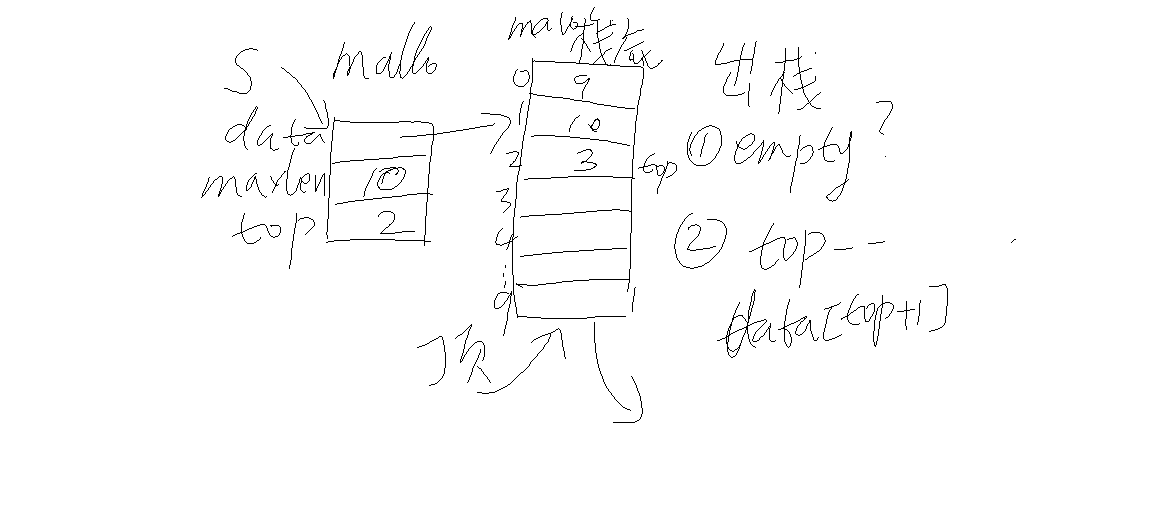 S
mallo
data
maxlen 10
top 2
栈底
0 9
1 10
2 3 top
3
4
9
顶
出栈
① empty?
② top--
data[top+1]